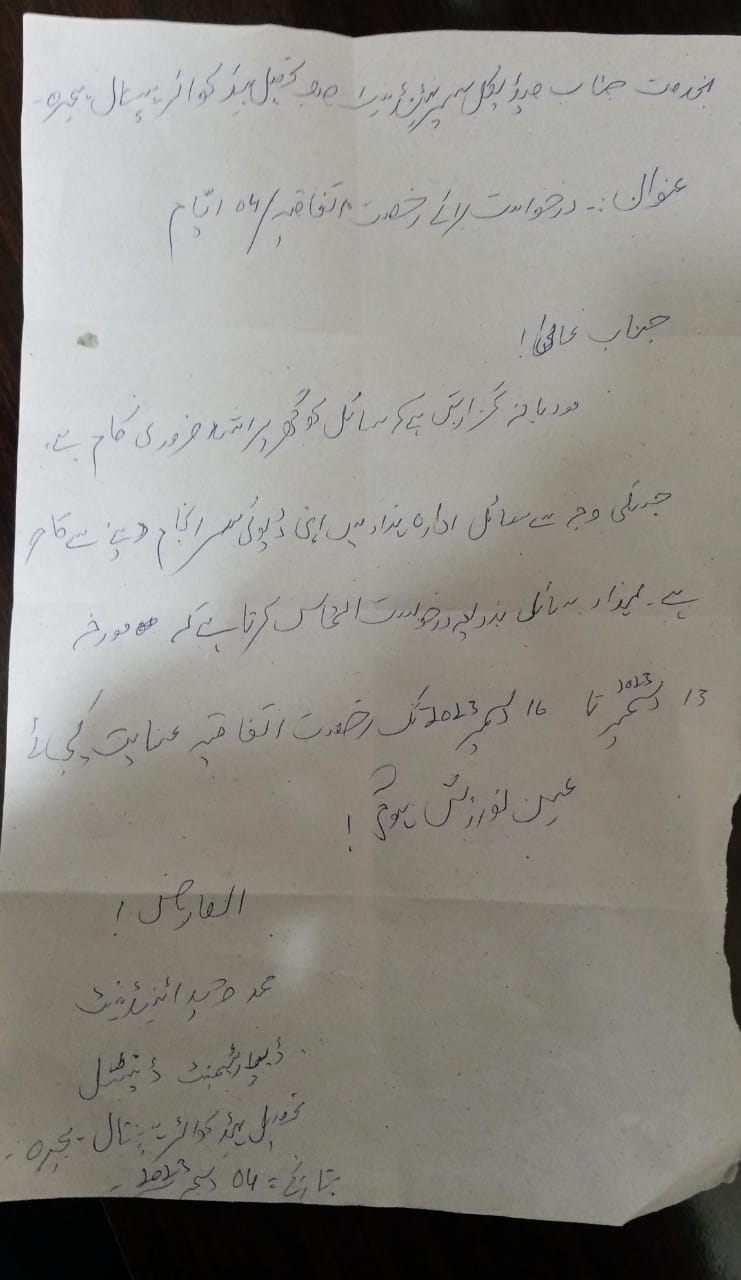 بخدمت جناب میڈیکل سپرنٹنڈنٹ صاحب تحصیل ہیڈ کوائر ہسپتال ہجیرہ۔
عنوان :۔ درخواست برائے رخصت اتفاقیہ / 04 ایّام
جناب عالی!
مودبانہ گزارش ہے کہ سائل کو گھر پر اشد ضروری کام ہے۔
جسکی وجہ سے سائل ادارہ ہذا میں اپنی ڈیوٹی سر انجام دینے سے قاصر
ہے۔ لہذا سائل بذریعہ درخواست التماس کرتا ہے کہ مورخہ
13 دسمبر 2023 تا 16 دسمبر 2023 تک رخصت اتفاقیہ عنایت کیجائے
عین نوازش ہوگی!
العارض!
محمد اٹینڈینٹ
ڈیپارٹمنٹ ڈینٹل
تحصیل ہیڈ کوائر ہسپتال ہجیرہ۔
بتاریخ = 04 دسمبر 2023۔